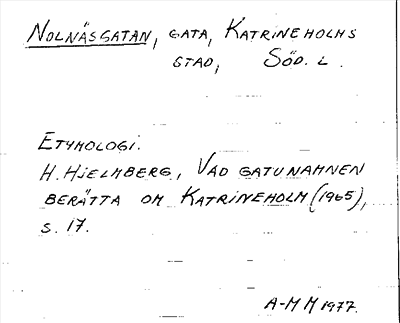 NOLNÄSGATAN, GATA, KATRINEHOLMS
STAD, SÖD. L.
ETYMOLOGI.
H. HJELMBERG, VAD GATUNAMNEN
BERÄTTA OM KATRINEHOLM (1965),
S. 17.
A-M M 1977.